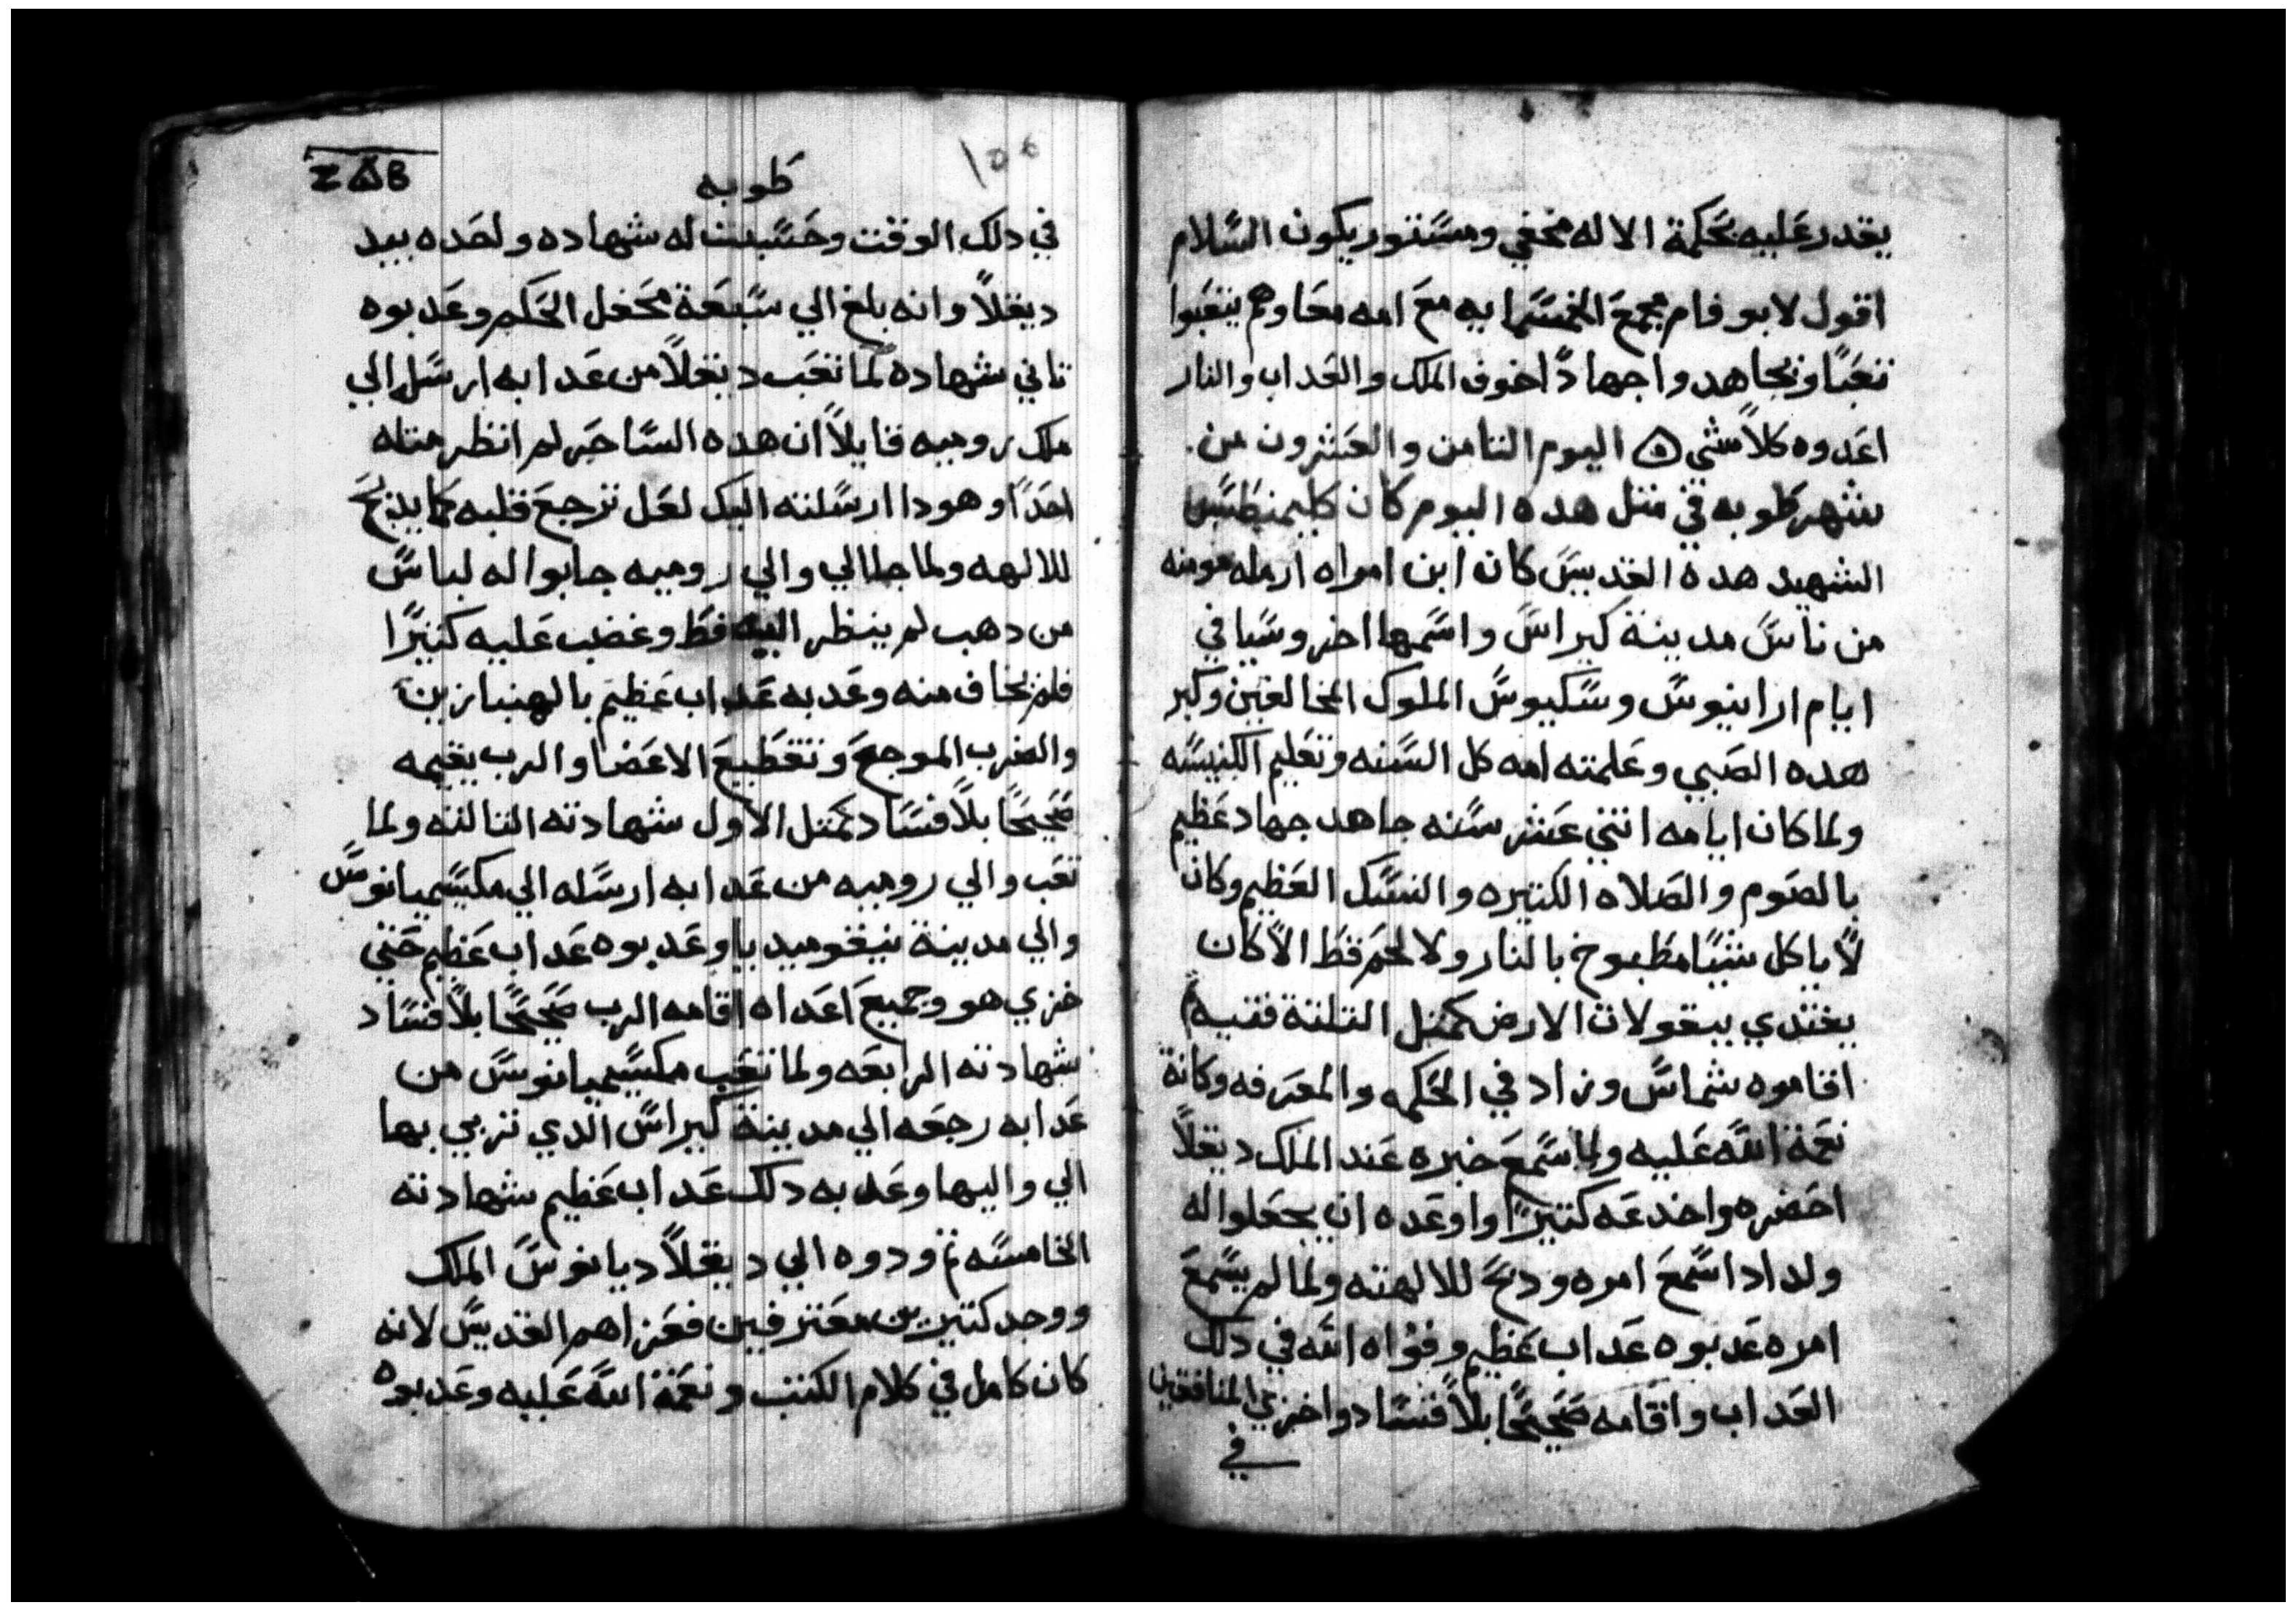 يقدر عليه بحكمة الاله مخفي ومستور يكون السلام
اقول لابو فام مجمع الخمسمايه مع امه معا وهم يتعبوا
تعبًا ونجاهدوا جهادًا خوف الملك والعداب والنار
اعدوه كلا شي اليوم التامن والعشرون من
شهر طوبه في متل هده اليوم كان كليمنطس
الشهيد هده القديس كان ابن امراه ارمله مومنه
من ناس مدينة كيراس واسمها اخروسيا في
ايام ارانيوس وسكيوس الملوك المخالفين وكبر
هده الصبي وعلمته امه كل السنه وتعليم الكنيسه
ولما كان ايامه اتني عشر سنه جاهد جهاد عظيم
بالصوم والصلاه الكتيره والنسك العظيم وكان
لا ياكل شيًا مطبوخ بالنار ولا لحم قط الا كان
يغتدي ببقولات الارض كمتل التلتة فتيه
اقاموه شماس وزاد في الحكمه والمعرفه وكانة
نعمة الله عليه ولما سمع خبره عند الملك ديقلا
احضره واخدعه كتيرًا واوعده ان يجعلوا له
ولد ادا سمع امره ودبح للالهته ولما لم يسمع
امره عدبوه عداب عظيم وقواه الله في دلك
العداب واقامه صحيحًا بلا فساد واخزي المنافقين
في
ⲤⲠⲂ
طوبه
١٥٥
في دلك الوقت وحسبت له شهاده واحده بيد
ديقلا وانه بلغ الي سبعة محفل الحكم وعدبوه
تاني شهاده لما تعب ديقلا من عدابه ارسل الي
ملك روميه قايلا ان هده الساحر لم انظر متله
احدًا وهودا ارسلته اليك لعل ترجع قلبه كما يدبح
للالهه ولما جا الي والي روميه جابوا له لباس
من دهب لم ينظر اليه قط وغضب عليه كتيرًا
فلم يخاف منه وعدبه عداب عظيم بالهنبازين
والضرب الموجع وتقطيع الاعضا والرب يقيمه
صحيحًا بلا فساد كمتل الاول شهادته التالته ولما
تعب والي روميه من عدابه ارسله الي مكسيميانوس
والي مدينة نيقوميديا وعدبوه عداب عظيم حتي
خزي هو وجميع اعداه اقامه الرب صحيحًا بلا فساد
شهادته الرابعه ولما تعب مكسيميانوس من
عدابه رجعه الي مدينة كيراس الدي تربي بها
الي واليها وعدبه دلك عداب عظيم شهادته
الخامسه تم ودوه الي ديقلاديانوس الملك
ووجد كتيرين معترفين فعزاهم القديس لانه
كان كامل في كلام الكتب ونعمة الله عليه وعدبوه